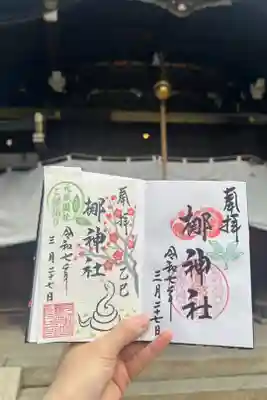 奉拝
梛神社
令和七年
三月二十七日
奉拝
乙巳
梛神社
令和七年
三月二十七日
元祇園社